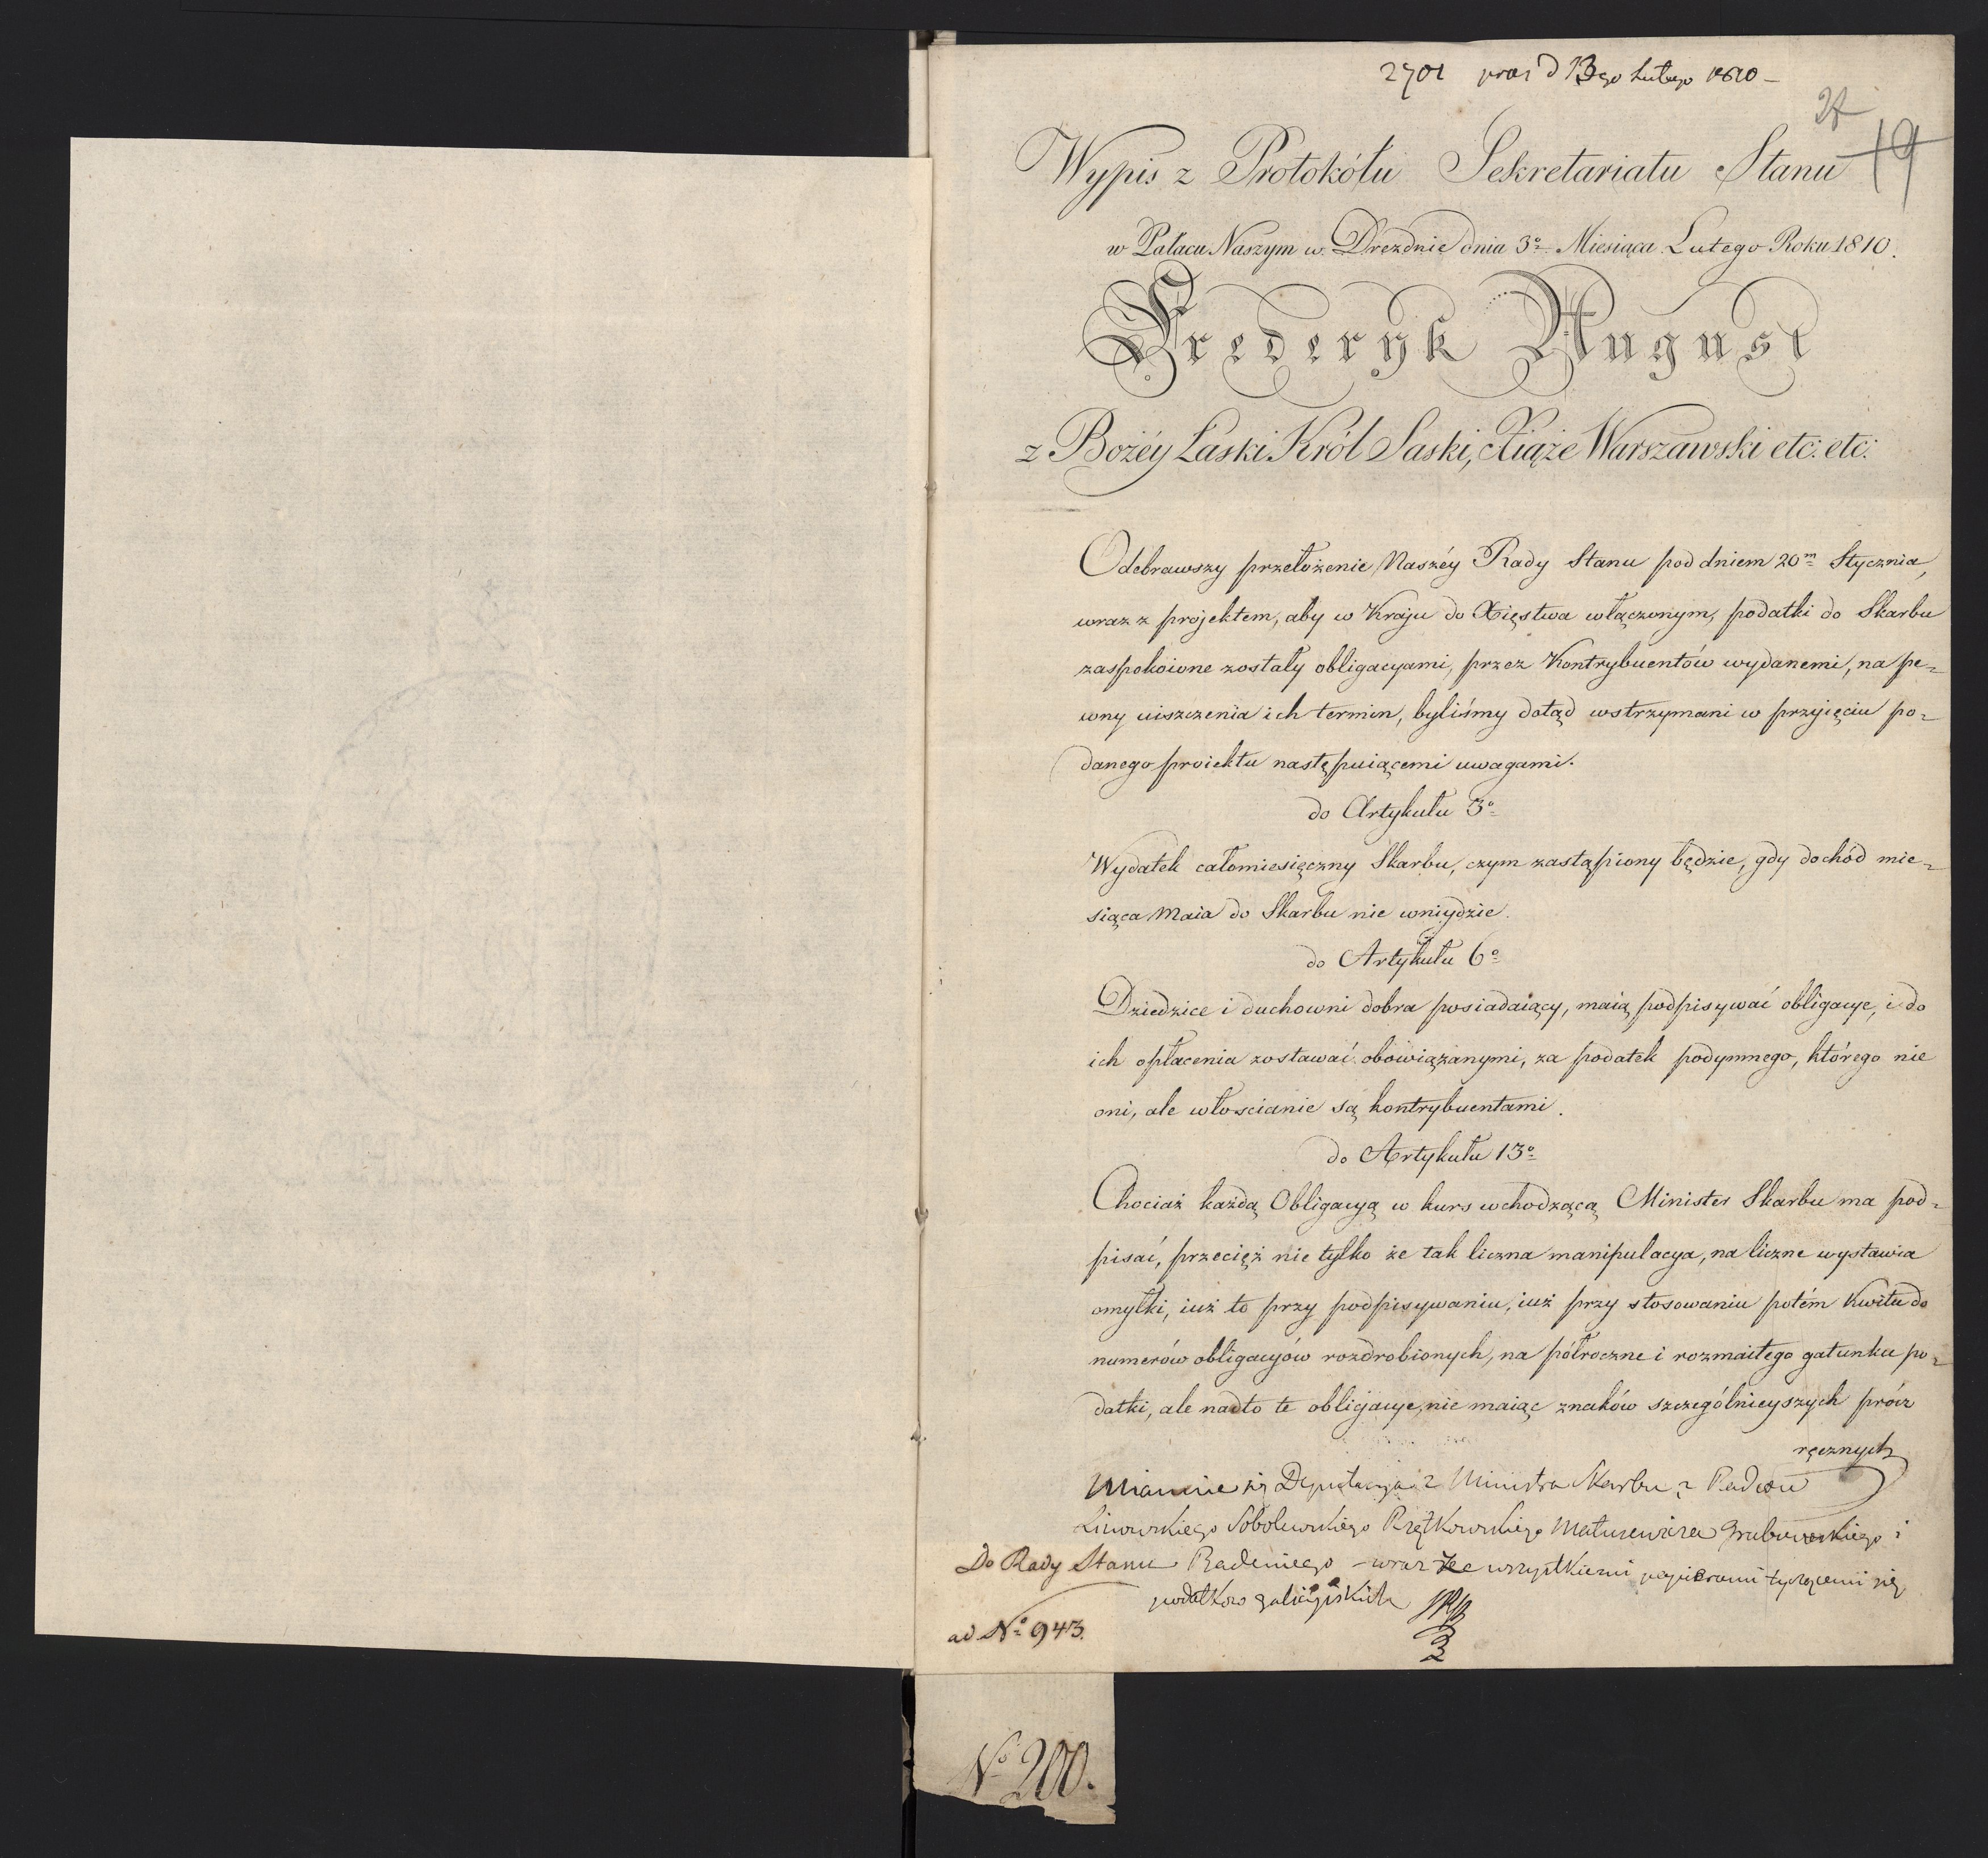 2701 praes d 13go Lutego 1810 –
24
19
Wypis z Protokółu Sekretariatu Stanu
w Pałacu Naszym w Dreznie dnia 3o Miesiąca Lutego Roku 1810.
Frederyk August
z Bożéy Łaski Król Saski, Xiąże Warszawski etc: etc:
Odebrawszy przełożenie Naszéy Rady Stanu pod dniem 20m Stycznia,
wraz z projektem, aby w Kraju do Xięstwa włączonym, podatki do Skarbu
zaspokoione zostały obligacyami, przez Kontrybuentów wydanemi, na pe=
wny uiszczenia ich termin, byliśmy dotąd wstrzymani w przyięciu po=
danego proiektu następuiącemi uwagami.
do Artykułu 3o
Wydatek całomiesięczny Skarbu, czym zastąpiony będzie, gdy dochód mie=
siąca Maia do Skarbu nie wniydzie.
do Artykułu 6o
Dziedzice i duchowni dobra posiadaiący, maią podpisywać obligacye, i do
ich opłacenia zostawać obowiązanymi, za podatek podymnego, którego nie
oni, ale włoscianie są kontrybuentami.
do Artykułu 13o
Chociaż każdą Obligacyą w kurs wchodzącą Minister Skarbu ma pod=
pisać, przecięż nie tylko że tak liczna manipulacya, na liczne wystawia
omyłki, iuż to przy podpisywaniu, iuż przy stosowaniu potém Kwitu do
numerów obligacyów rozdrobionych, na półroczne i rozmaitego gatunku po=
datki, ale nadto te obligacye, nie maiąc znaków szczególnieyszych prócz
ręcznych
Mianuie się Deputacya z Ministra Skarbu z Radców
Linowskiego Sobolewskiego Matusewicza Grabowskiego i
Do Rady Stanu Badeniego – wraz ze wszystkiemi papierami tyczącemi się
podatkow galicyiskich
ad No 943.
No 200.